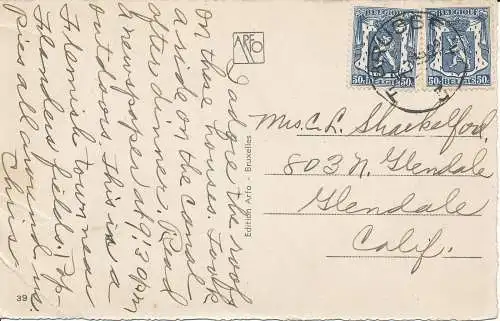 I adore the roofs
on these houses. Took
a ride on the canal
after dinner. Read
a newspaper at 9:30 P.M.
outdoors. This is a
Flemish town near
Flanders fields. Pop-
pies all around us.
Chris
39
ARFO
Edition Arfo - Bruxelles
BELGIQUE
50c BELGIE 50c
BELGIQUE
50c BELGIE 50c
Mrs. C. L. Shackelford,
803 N. Glendale
Glendale
Calif.